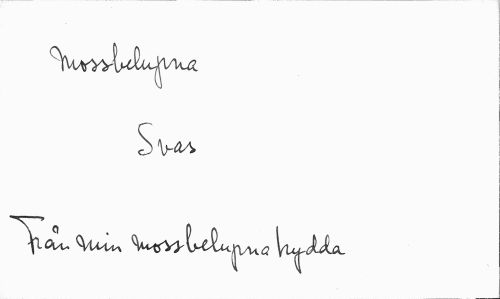 Mossbelupna
Svas
Från min mossbelupna hydda